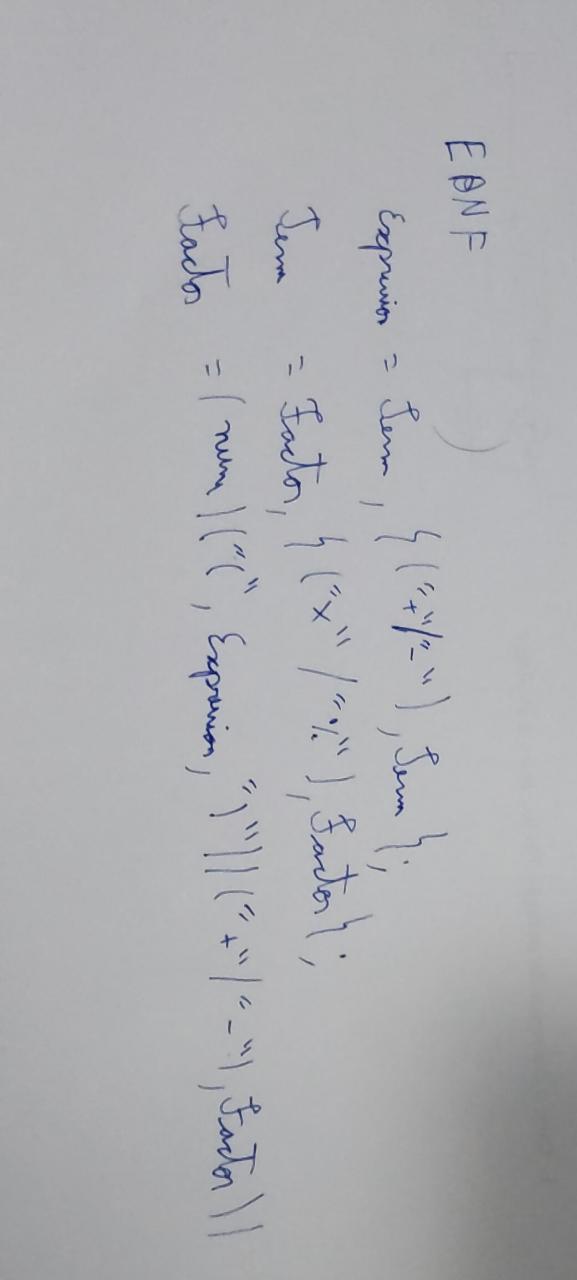 EBNF
Expression = Term, { ("+"/"-"), Term };
Term = Factor, { ("x" / "%"), Factor };
Factor = (num | ("(", Expression, ")") | ("+" / "-"), Factor))